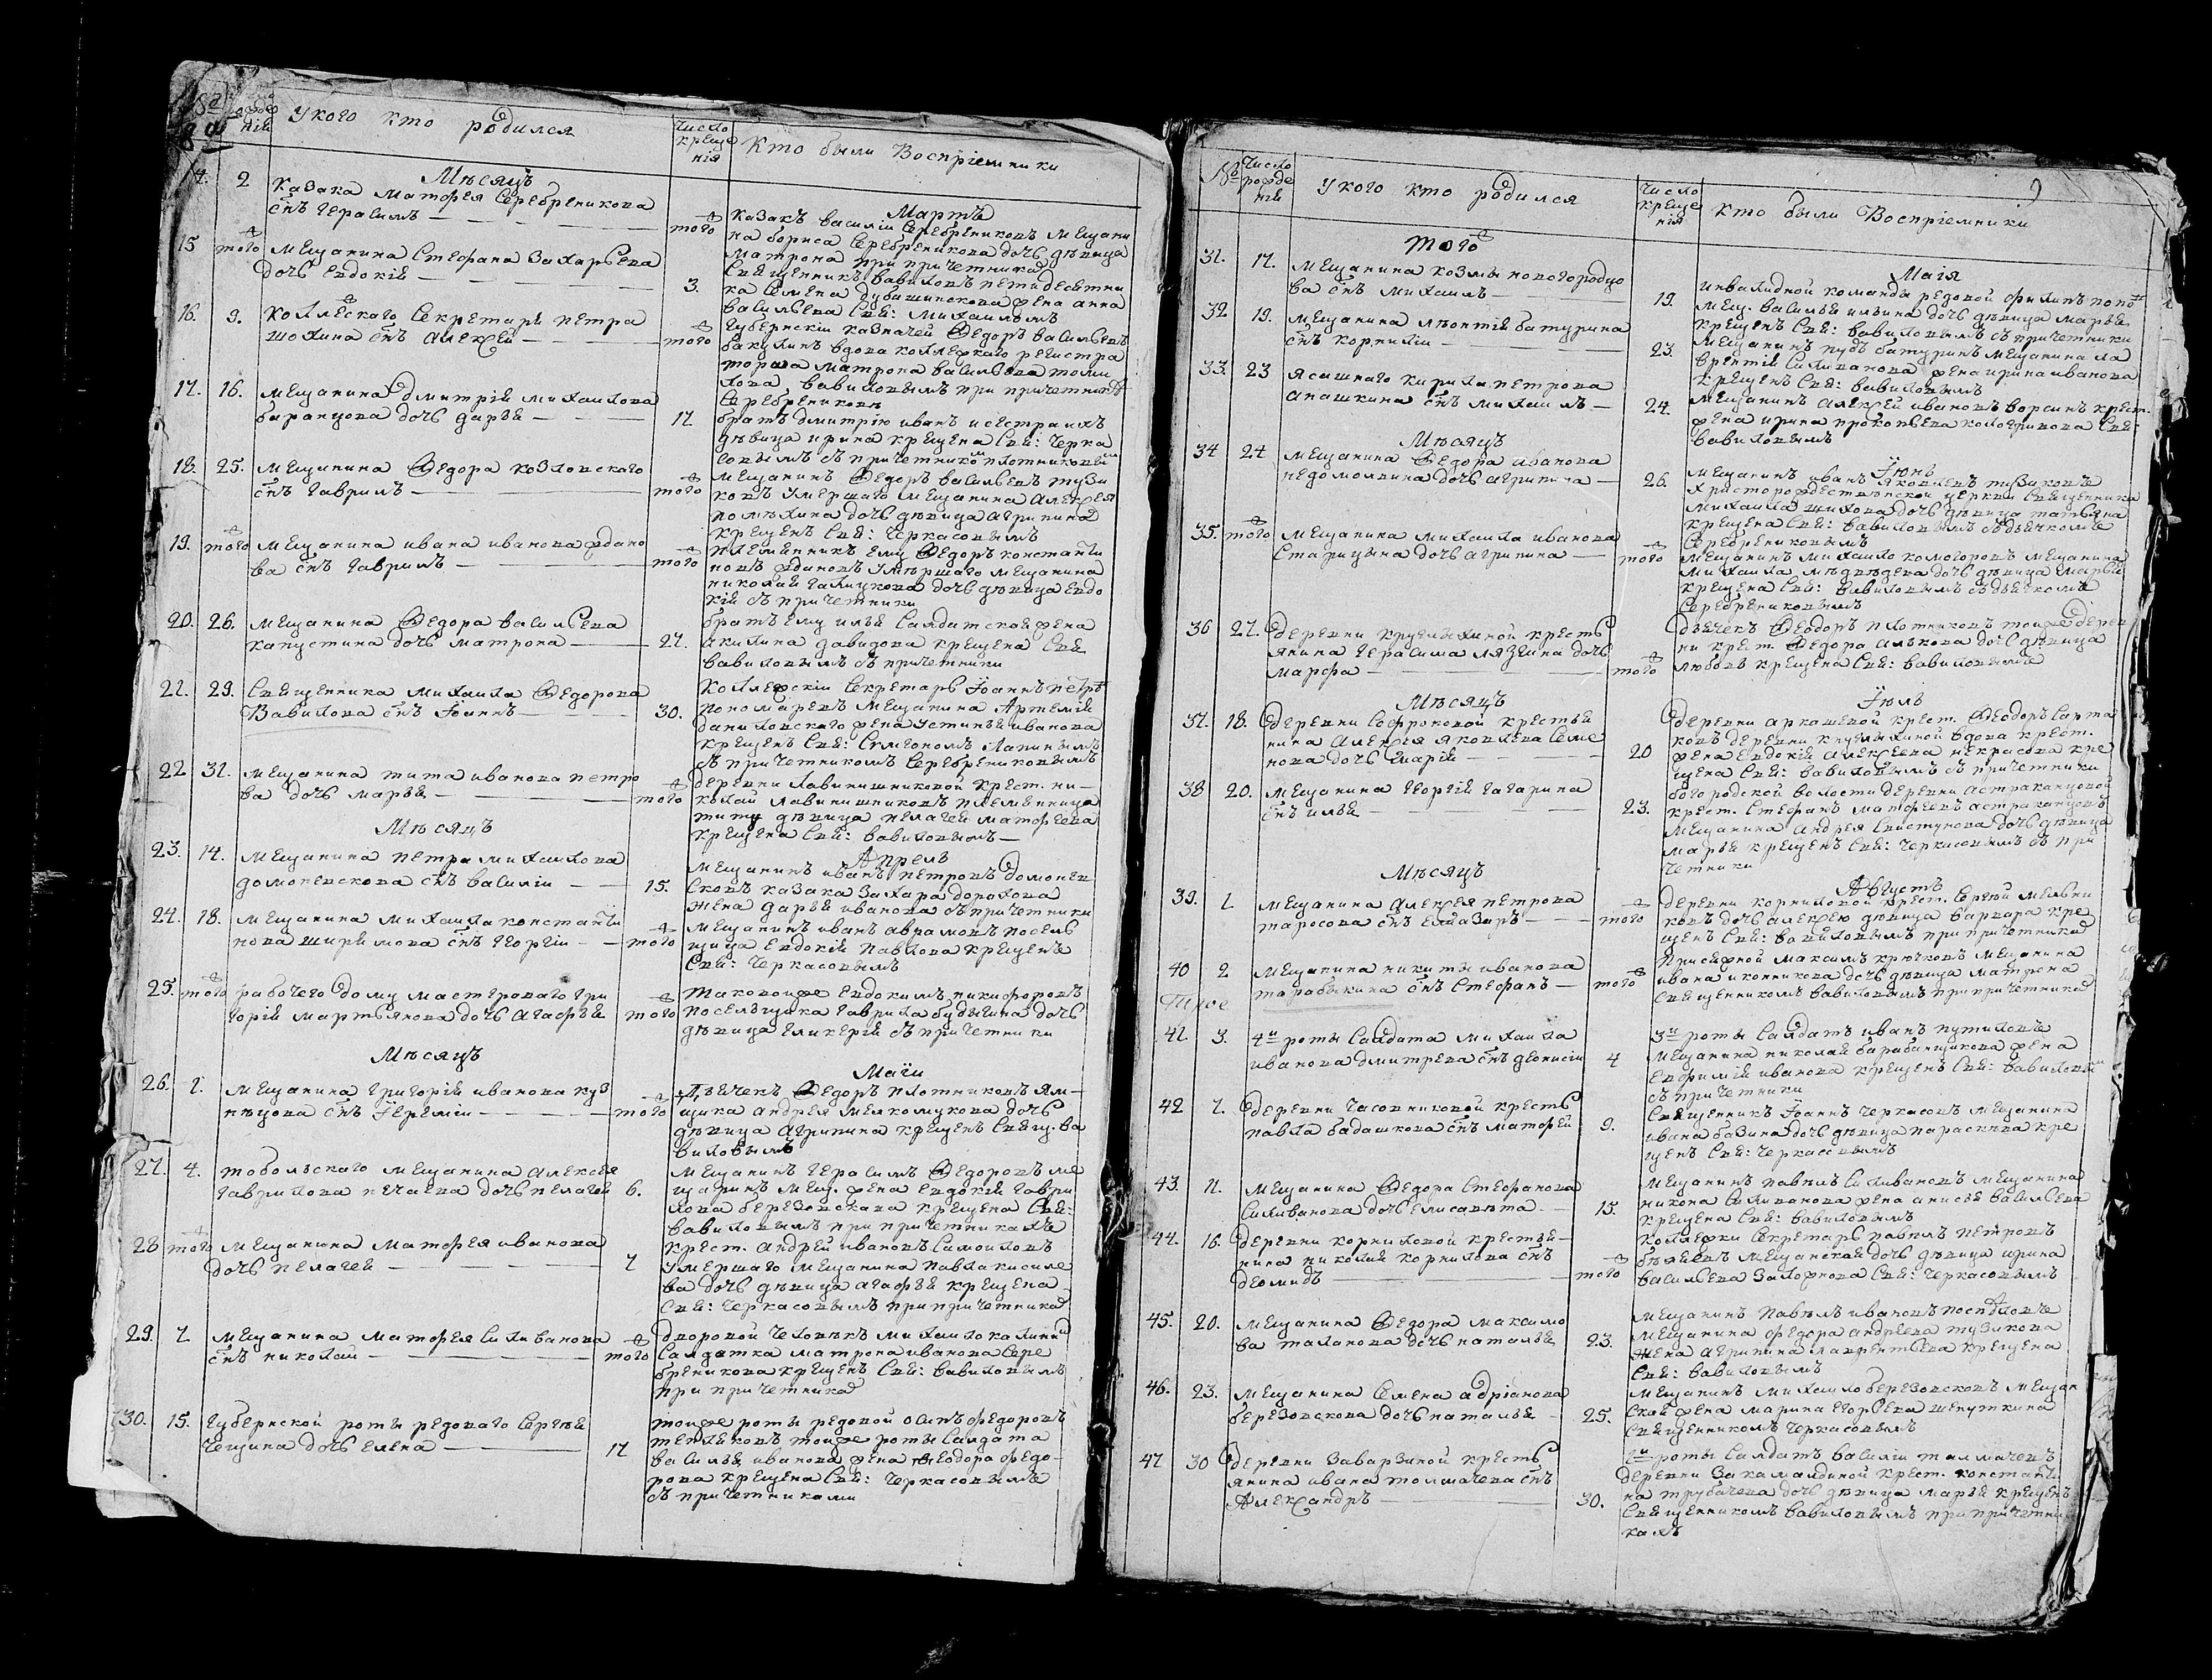 № число рожде нія
У кого кто родился
число креще нія
Кто были Воспріемники
Мѣсяцъ
Мартъ
14. 2 Казака Матофея Серебреникова
снъ Герасимъ
тогож
Казакъ василіи Серебрениковъ мещани
на бориса Серебреникова дочь дѣвица
матрона при причетникаˣ
15 тогож Мещанина Стефана Захарьева
дочь Евдокія
3.
Священникъ вавиловъ пятидесятни
ка Семена жена анна
васильева Свя: Михаиломъ
16. 9. Коллежскаго Секретаря петра
шохина снъ Алексей
тогож
Губернскіи казначей Федоръ васильевъ
бакулинъ вдова коллежскаго регистра
тора матрона васильева томи
лова, вавиловымъ при причетникѣ
Серебрениковѣ
17. 16. мещанина Дмитрія михаилова
баранцова дочь дарья
17
братъ дмитрію иванъ и сестра ихъ
дѣвица ирина крещена Свя: Черка
совымъ съ причетникомъ плотниковымъ
18. 25. Мещанина Федора козловскаго
снъ гавриилъ
тогож
мещанинъ Федоръ васильевъ тузи
ковъ умершаго мещанина Алексея
дочь дѣвица агрипина
крещенъ Свя: Черкасовымъ
19. тогож мещанина ивана иванова ждано
ва снъ гавриилъ
тогож
племянникъ ему Федоръ константи
новъ ждановъ умершаго мещанина
николая галицкова дочь дѣвица евдо
кія съ причетники
20. 26. мещанина Федора васильева
капустина дочь матрона
27.
братъ ему илья салдатская жена
акилина давидова крещена Свя
вавиловымъ съ причетники
21. 29. Священника михаила Федорова
Вавилова снъ Іоаннъ
30.
Коллежскіи Секретарь Іоаннъ петръ
пономаревъ мещанина Артемія
даниловскаго жена устинья иванова
крещенъ Свя: Симеономъ Лапинымъ
съ причетникомъ Серебрениковымъ
22 31. мещанина тита иванова петро
ва дочь марья
тогож
деревни лавинишниковой крест. ни
колай лавинишниковъ племянница
титу дѣвица пелагея матофеева
крещена Свя: вавиловымъ
Мѣсяцъ
Апрель
23. 14. мещанина петра михаилова
домоневскова снъ василіи
15.
мещанинъ иванъ петровъ домонев
сковъ казака захара дорохова
жена дарья иванова съ причетники
24. 18. мещанина михаила константи
нова ширямова снъ георгіи
тогож
мещанинъ иванъ аврамовъ посель
щица евдокія павлова крещенъ
Свя: Черкасовымъ
25. тогож рабочего дому мастероваго гри
горія мартьянова дочь агафья
тогож
таковойже евдокимъ никифоровъ
посельщика гаврила будыгина дочь
дѣвица гликерія съ причетники
Мѣсяцъ
Маіи
26. 1. мещанина григорія иванова куз
нѣцова снъ Іереміи
тогож
дьячекъ Федоръ плотниковъ ям
щика андрея мелкомукова дочь
дѣвица агрипина крещенъ Свящ. ва
виловымъ
27. 4. тобольскаго мещанина алексея
гаврилова нечаева дочь пелагея
6.
мещанинъ герасимъ Федоровъ ме
щаринъ мещ. жена евдокія гаври
лова березовскова крещена Свя:
вавиловымъ при причетникахъ
28 тогож мещанина матофея иванова
дочь пелагея
7
крест. андрей ивановъ самоиловъ
умершаго мещанина павла киселе
ва дочь дѣвица агафья крещена
Свя: Черкасовымъ при причетникаˣ
29. 7. мещанина матофея Силиванова
снъ николай
тогож
дворовой человѣкъ михаило калинин
Салдатка матрона иванова Сере
бреникова крещенъ Свя: вавиловымъ
при причетникаˣ
30. 15. губернской роты редоваго Сергѣя
чещина дочь елена
17
тойже роты редовой осипъ федоровъ
тепляковъ тойже роты Салдата
василья иванова жена Феодора федо
рова крещена Свя: Черкасовымъ
съ причетниками
9
№ число рожде нія
У кого кто родился
число креще нія
Кто были Воспріемники
тогож
Маія
31. 17. мещанина козмы новогородцо
ва снъ михаилъ
19.
инвалидной команды редовой филипъ попо
мещ. василья ильина дочь дѣвица марья
крещенъ Свя: вавиловымъ съ причетники
32 19. мещанина лѣонтія батурина
снъ корниліи
23.
мещанинъ пудъ батуринъ мещанина ла
врентія Силиванова жена ирина иванова
крещенъ Свя: вавиловымъ
33. 23 ясашнаго кирила петрова
апашкина снъ михаилъ
24.
мещанинъ алексей ивановъ ворсинъ крест.
жена ирина прокопьева кологривова Свя:
вавиловымъ
Мѣсяцъ
Іюнь
34 24 мещанина Федора иванова
недомолвина дочь агрипина
26.
мещанинъ иванъ яковлевъ тизиковъ
христорождественской церкви Священника
михаила шихова дочь дѣвица татьяна
крещена Свя: вавиловымъ съ дьячкомъ
Серебрениковымъ
35. тогож мещанина михаила иванова
Старицына дочь агрипина
тогож
мещанинъ михаило комогоровъ мещанина
михаила мѣдвѣдева дочь дѣвица марья
крещена Свя: вавиловымъ съ дьячкомъ
Серебрениковымъ
36 27. деревни круглыхиной кресть
янина герасима лязгина дочь
марфа
тогож
дьячекъ Феодоръ плотниковъ тойже дерев
ни крест. Федора алькова дочь дѣвица
любовь крещена Свя: вавиловымъ
Мѣсяцъ
Іюль
37. 18. деревни Софроновой крестья
нина алексея яковлева Семе
нова дочь марія
20
деревни аркашевой крест. Феодоръ Сарта
ковъ деревни крулыхиной вдова крест.
жена евдокія алексеева некрасова кре
щена Свя: вавиловымъ съ причетники
38 20. мещанина георгія гагарина
снъ илья
23.
богородской волости деревни астраханцовой
крест. Стефанъ матофеевъ астраханцовъ
мещанина андрея Свистунова дочь дѣвица
марья крещенъ Свя: Черкасовымъ съ при
четники
Мѣсяцъ
Августъ
39. 1 мещанина алексея петрова
тарасова снъ елиазаръ
тогож
деревни корниловой крест. Сергѣй мельни
ковъ дочь алексею дѣвица варвара кре
щенъ Свя: вавиловымъ при причетникаˣ
40 2 мещанина никиты иванова
тарабыкина снъ Стефанъ
тогож
присяжной максимъ крючковъ мещанина
ивана иконникова дочь дѣвица матрона
Священникомъ вавиловымъ при причетникаˣ
Трое
41 3. 4й роты Салдата михаила
иванова дмитрева снъ дѣонисіи
4
3й роты Салдатъ иванъ путиловъ
мещанина николая барабанщикова жена
евфимія иванова крещенъ Свя: вавиловым
съ причетники
42 7. деревни часовниковой кресть
павла бадашкова снъ матофей
9.
Священникъ Іоаннъ черкасовъ мещанина
ивана базина дочь дѣвица параскѣва кре
щенъ Свя: Черкасовымъ
43. 11. мещанина Федора Стефанова
Силиванова дочь елисавѣта
15.
мещанинъ павелъ Силивановъ мещанина
никона Силиванова жена анисья васильева
крещена Свя: вавиловымъ
44. 16. деревни корниловой крестья
нина николая корнилова снъ
деомидъ
тогож
коллежски Секретарь павелъ петровъ
бѣляевъ мещанская дочь дѣвица ирина
васильева Свя: Черкасовымъ
45. 20. мещанина Федора максимо
ва таланова дочь наталья
23.
мещанинъ павелъ ивановъ поспѣловъ
мещанина федора андреева тузикова
жена агрипина лаврентьева крещена
Свя: вавиловымъ
46. 23. мещанина Семена адріанова
березовскова дочь наталья
25.
мещанинъ михаило березовсковъ мещан
ская жена марина егорьева шекуткина
Священникомъ Черкасовымъ
47 30 деревни заварзиной кресть
янина ивана толмачева снъ
Александръ
30.
1й роты Салдатъ василіи толмачевъ
деревни закамалдиной крест. констант
на трубачева дочь дѣвица марья крещенъ
Священникомъ вавиловымъ при причетни
кахъ